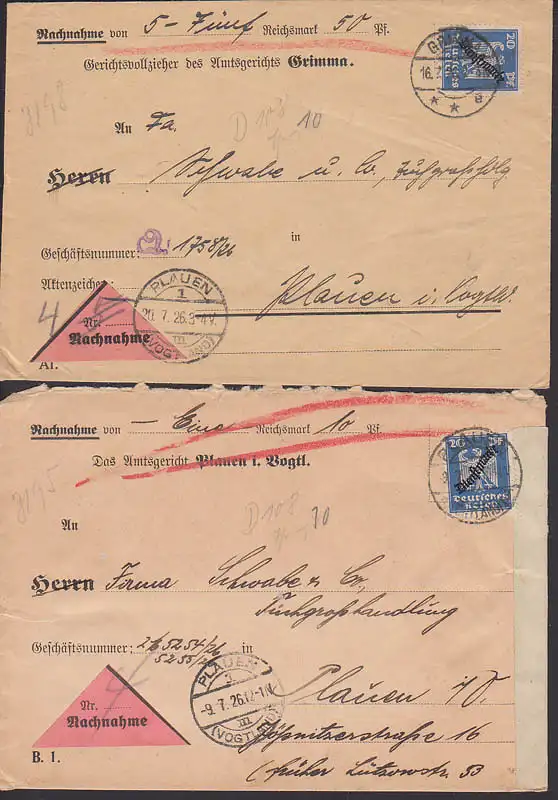 Nachnahme von 5 - Fünf Reichsmark 50 Pf.
Gerichtsvollzieher des Amtsgerichts Grimma.
16.7.
20 Pf.
Dienstmarke
3198
D 108
10
An Fa.
Herrn Schwabe u. Co,
in
Geschäftsnummer: 1758/26
Aktenzeichen
Plauen i. Vogtld.
PLAUEN
1
20.7.26.3-4V.
m
(VOGTLAND)
4
Nr.
Nachnahme
A1.
Nachnahme von - Eine Reichsmark 10 Pf.
Das Amtsgericht Plauen i. Vogtl.
PLAUEN
20 Pf
Dienstmarke
Deutsches
Reich
3195
D 108
30
An
Herrn Firma Schwabe & Co,
Tuchgroßhandlung
Geschäftsnummer: 26 5254/26
5255/
in
PLAUEN
1
-9.7.26.12-1N.
m
(VOGTLAND)
Plauen i/V.
4
Nr.
Nachnahme
Jößnitzerstraße 16
B. 1.
(früher Lützowstr. 53